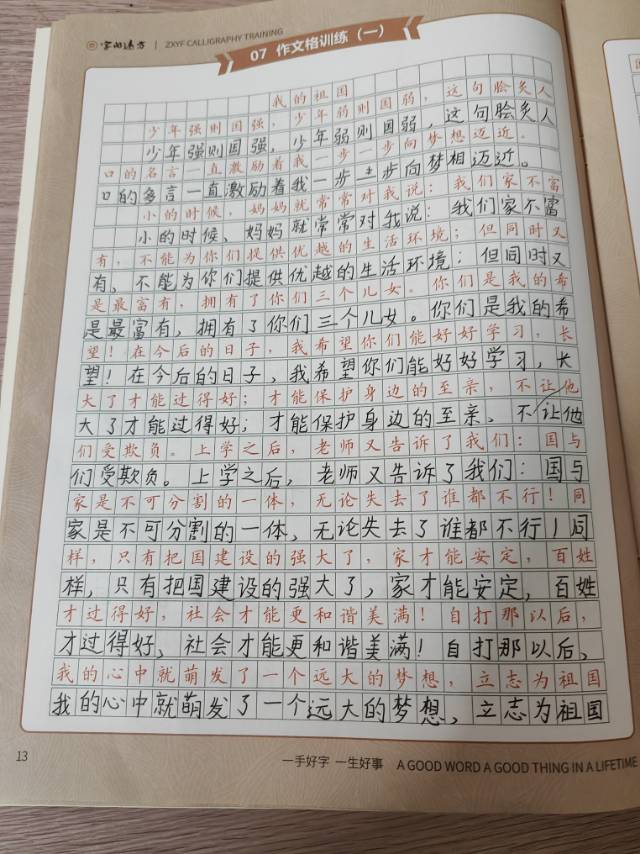 字以速方 | ZXYF CALLIGRAPHY TRAINING
07 作文格训练（一）
我的祖国
少年强则国强，少年弱则国弱，这句脍炙人
少年强则国强，少年弱则国弱，这句脍炙人
口的名言一直激励着我一步一步向梦想迈近。
口的多言一直激励着我一步土步向梦相迈近。
小的时候，妈妈就常常对我说：我们家不富
小的时候、妈妈就常常对我说：我们家不富
有，不能为你们提供优越的生活环境；但同时又
有，不能为你们提供优越的生活环境；但同时又
是最富有，拥有了你们三个儿女。你们是我的希
是最富有，拥有了你们三个儿女。你们是我的希
望！在今后的日子，我希望你们能好好学习，长
望！在今后的日子，我希望你们能好好学习，大
大了才能过得好；才能保护身边的至亲，不让他
大了才能过得好；才能保护身边的至亲、不让他
们受欺负。上学之后，老师又告诉了我们：国与
们受欺负。上学之后，老师又告诉了我们：国与
家是不可分割的一体，无论失去了谁都不行！同
家是不可分割的一体，无论失去了谁都不行！同
样，只有把国建设的强大了，家才能安定，百姓
样，只有把国建设的强大了，家才能安定，百姓
才过得好，社会才能更和谐美满！自打那以后，
才过得好、社会才能更和谐美满！自打那以后、
我的心中就萌发了一个远大的梦想，立志为祖国
我的心中就萌发了一个远大的梦想，立志为祖国
13
一手好字 一生好事 A GOOD WORD A GOOD THING IN A LIFETIME